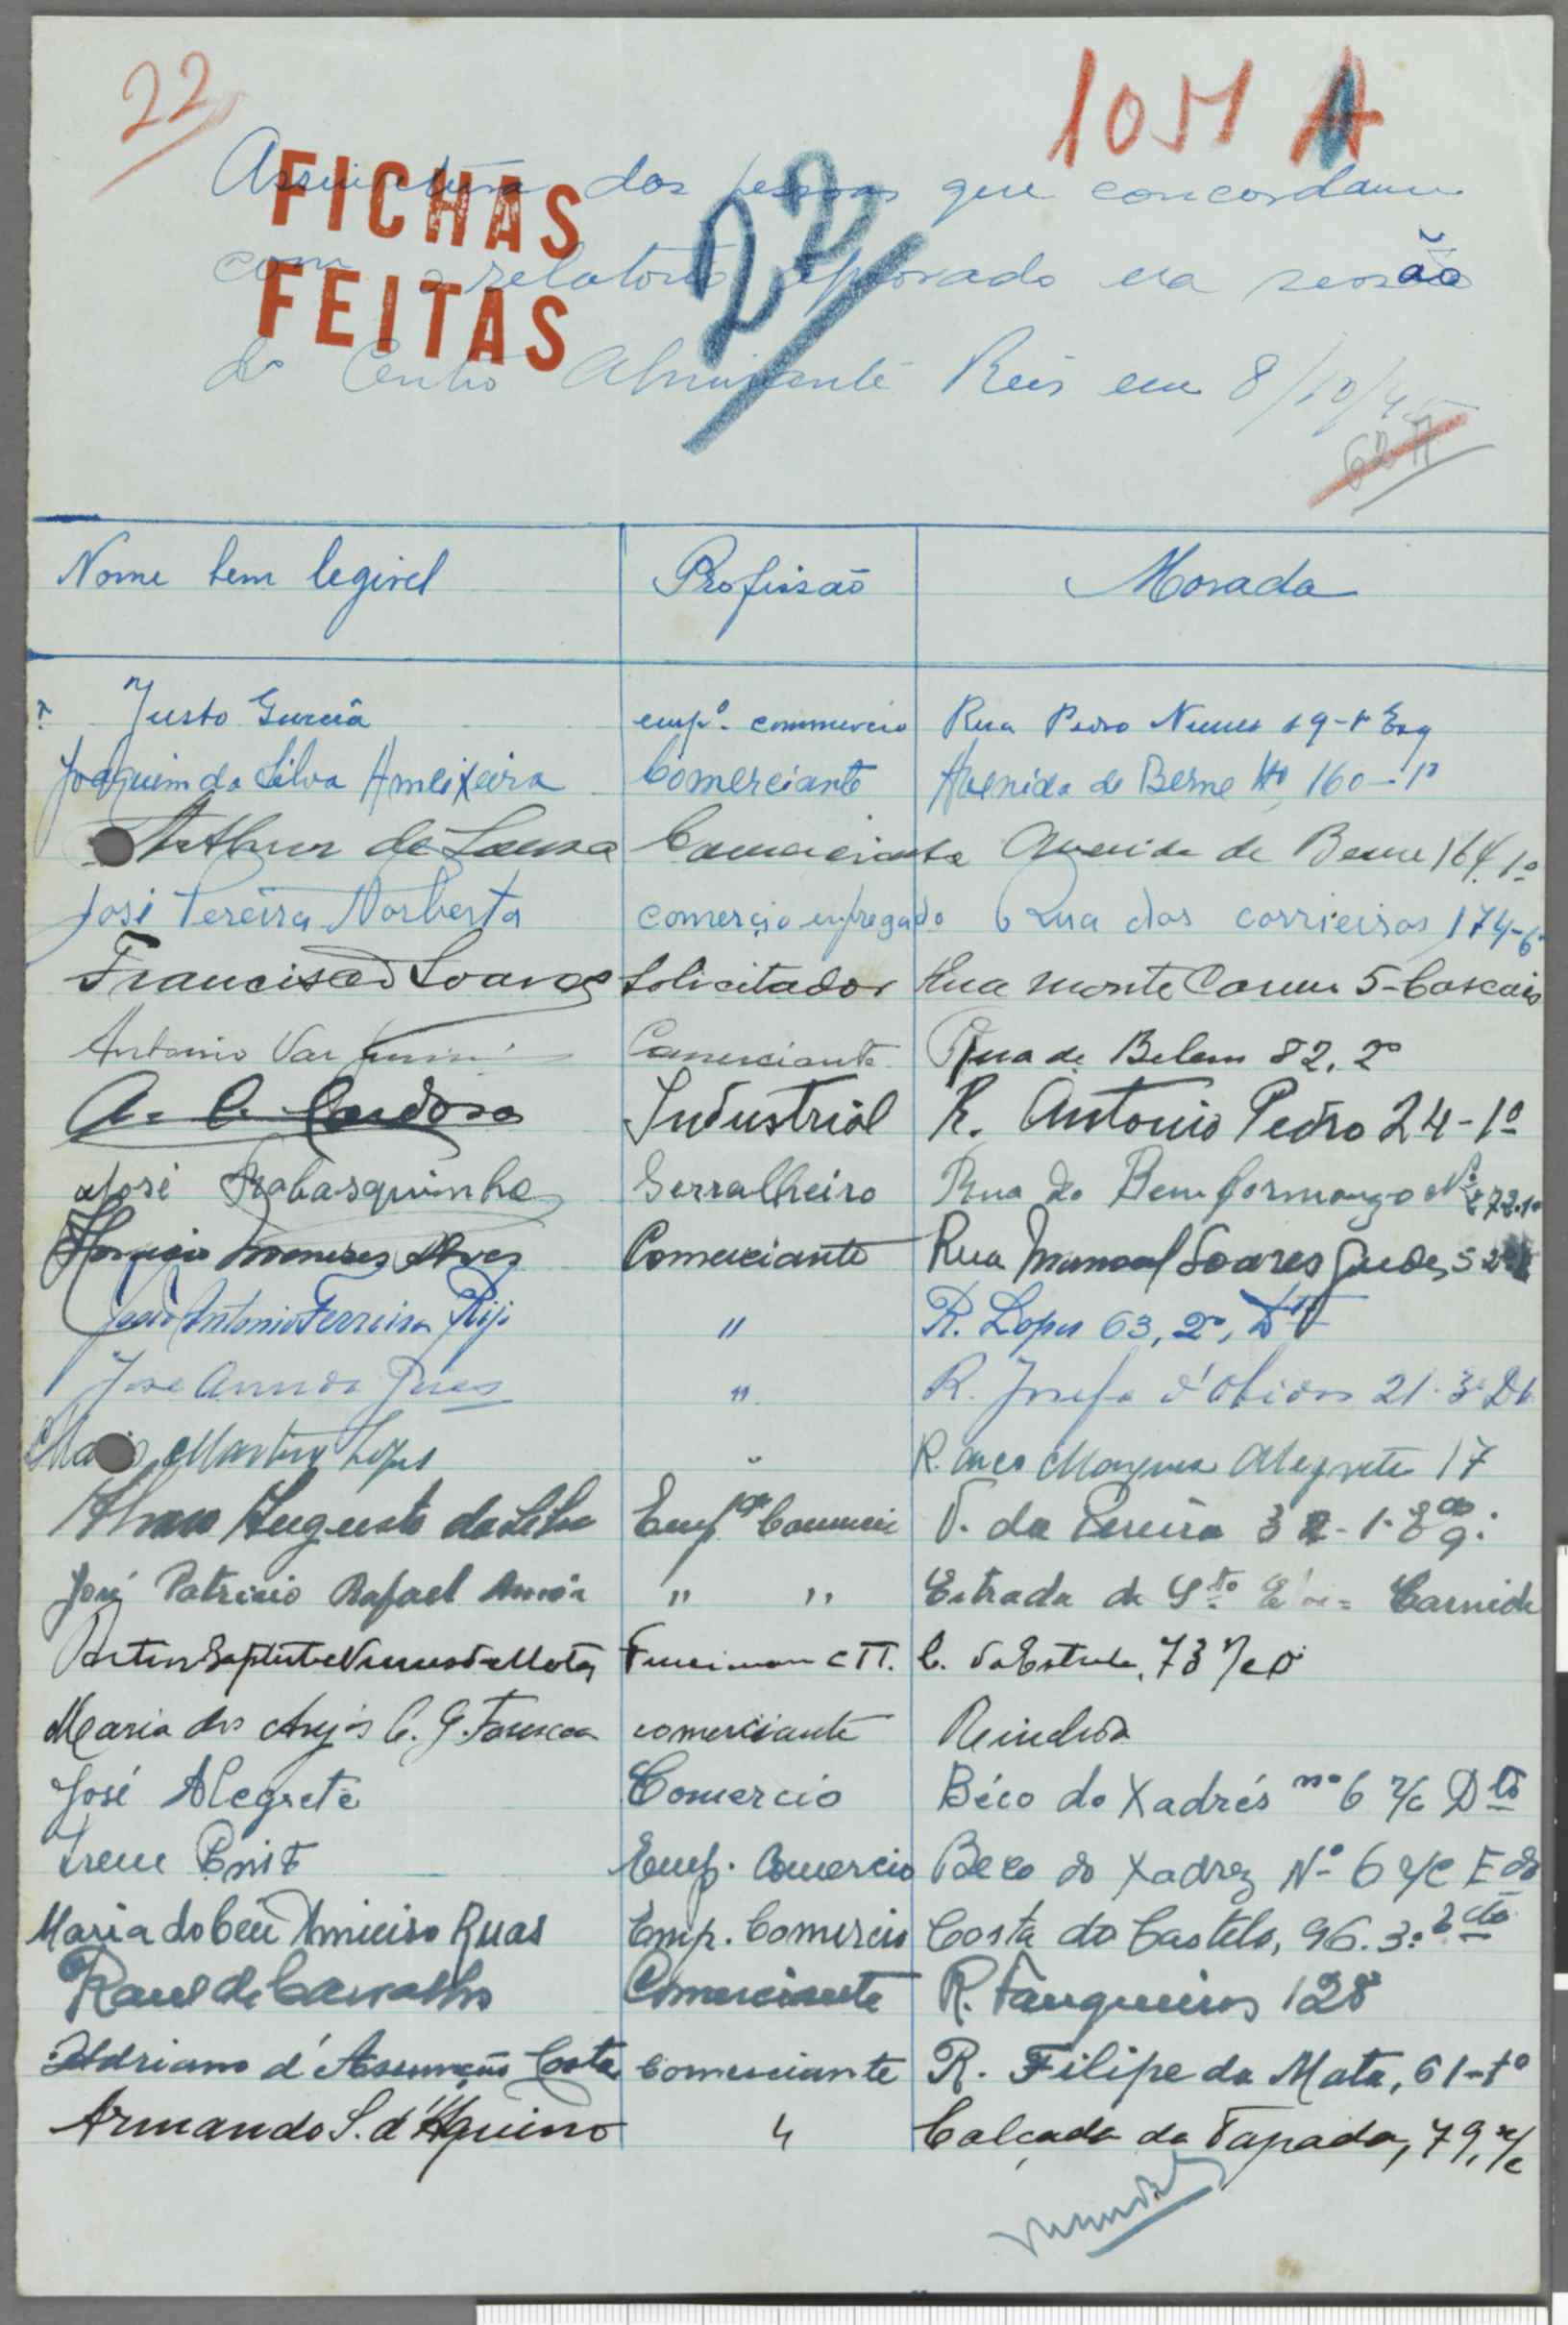 22
10M A
Assinatura das pessoas que concordam
FICHAS
22
com o relatorio aprovado na sessão
FEITAS
do Centro Almirante Reis em 8/10/45
62A
Nome bem legivel Profissão Morada
? Justo Garcia emp.º commercio Rua Pedro Nunes 19-1º Esq
Joaquim da Silva Ameixeira Comerciante Avenida de Berne Nº 160-1º
Arthur de Sousa Comerciante Avenida de Berne 164 1º
José Pereira Norberto comercio empregado Rua dos correeiros 174-6º
Francisco Soares Solicitador Rua Monte Carmo 5-Cascais
Antonio Vaz Comerciante Rua de Belem 82, 2º
A. C. Cardoso Industrial R. Antonio Pedro 24-1º
José Trabasquinho Serralheiro Rua do Bemformozo Nº 272.1º
Horacio Meneses Alves Comerciante Rua Manoel Soares Guedes 5 2º
João Antonio Ferreira Rijo " R. Lopes 63, 2º, Dto
José " R. Josefa d'Obidos 21-3º Dt
Mario Martins Lopes " R. arco Marquez Alegrete 17
Alvaro Augusto da Silva Emp.do Commercio V. da Pereira 32-1. Esq.
José Patricio Rafael " " Estrada de Sto Eloi = Carnide
Baptista Nunes da Mota Funcionario CTT. C. da Estrela, 73 r/c D
Maria dos Anjos C. G. Fonseca comerciante Reindeda
José Alegrete Comercio Béco do Xadrés nº 6 r/c Dto
Irene Emp. Comercio Beco do Xadrez Nº 6 r/c Edo
Maria do Céu Amieiro Ruas Emp. Comercio Costa do Castelo, 96.3º Dto
Raul de Carvalho Comerciante R. Fanqueiros 128
Adriano d'Assunção Costa Comerciante R. Filipe da Mata, 61-1º
Armando S. d'Aquino " Calçada da Tapada, 79, r/c